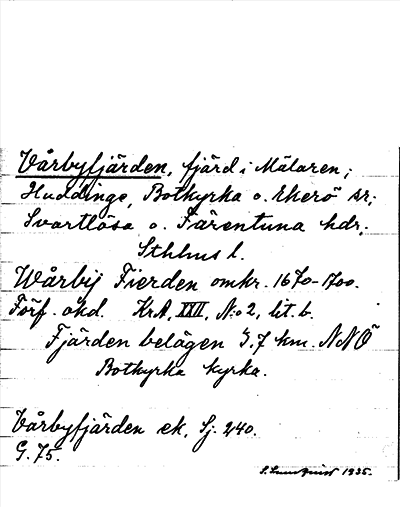 Vårbyfjärden, fjärd i Mälaren;
Huddinge, Botkyrka o. Ekerö sr;
Svartlösa o. Färentuna hdr,
Sthlms l.
Wårbÿ Fierden omkr. 1670-1700.
Förf. okd. KrA, XXII, N:o 2, lit. b.
Fjärden belägen 3,7 km. NNÖ
Botkyrka kyrka.
Vårbyfjärden ek, Sj. 240.
G. 75.
S. Lundqvist 1935.